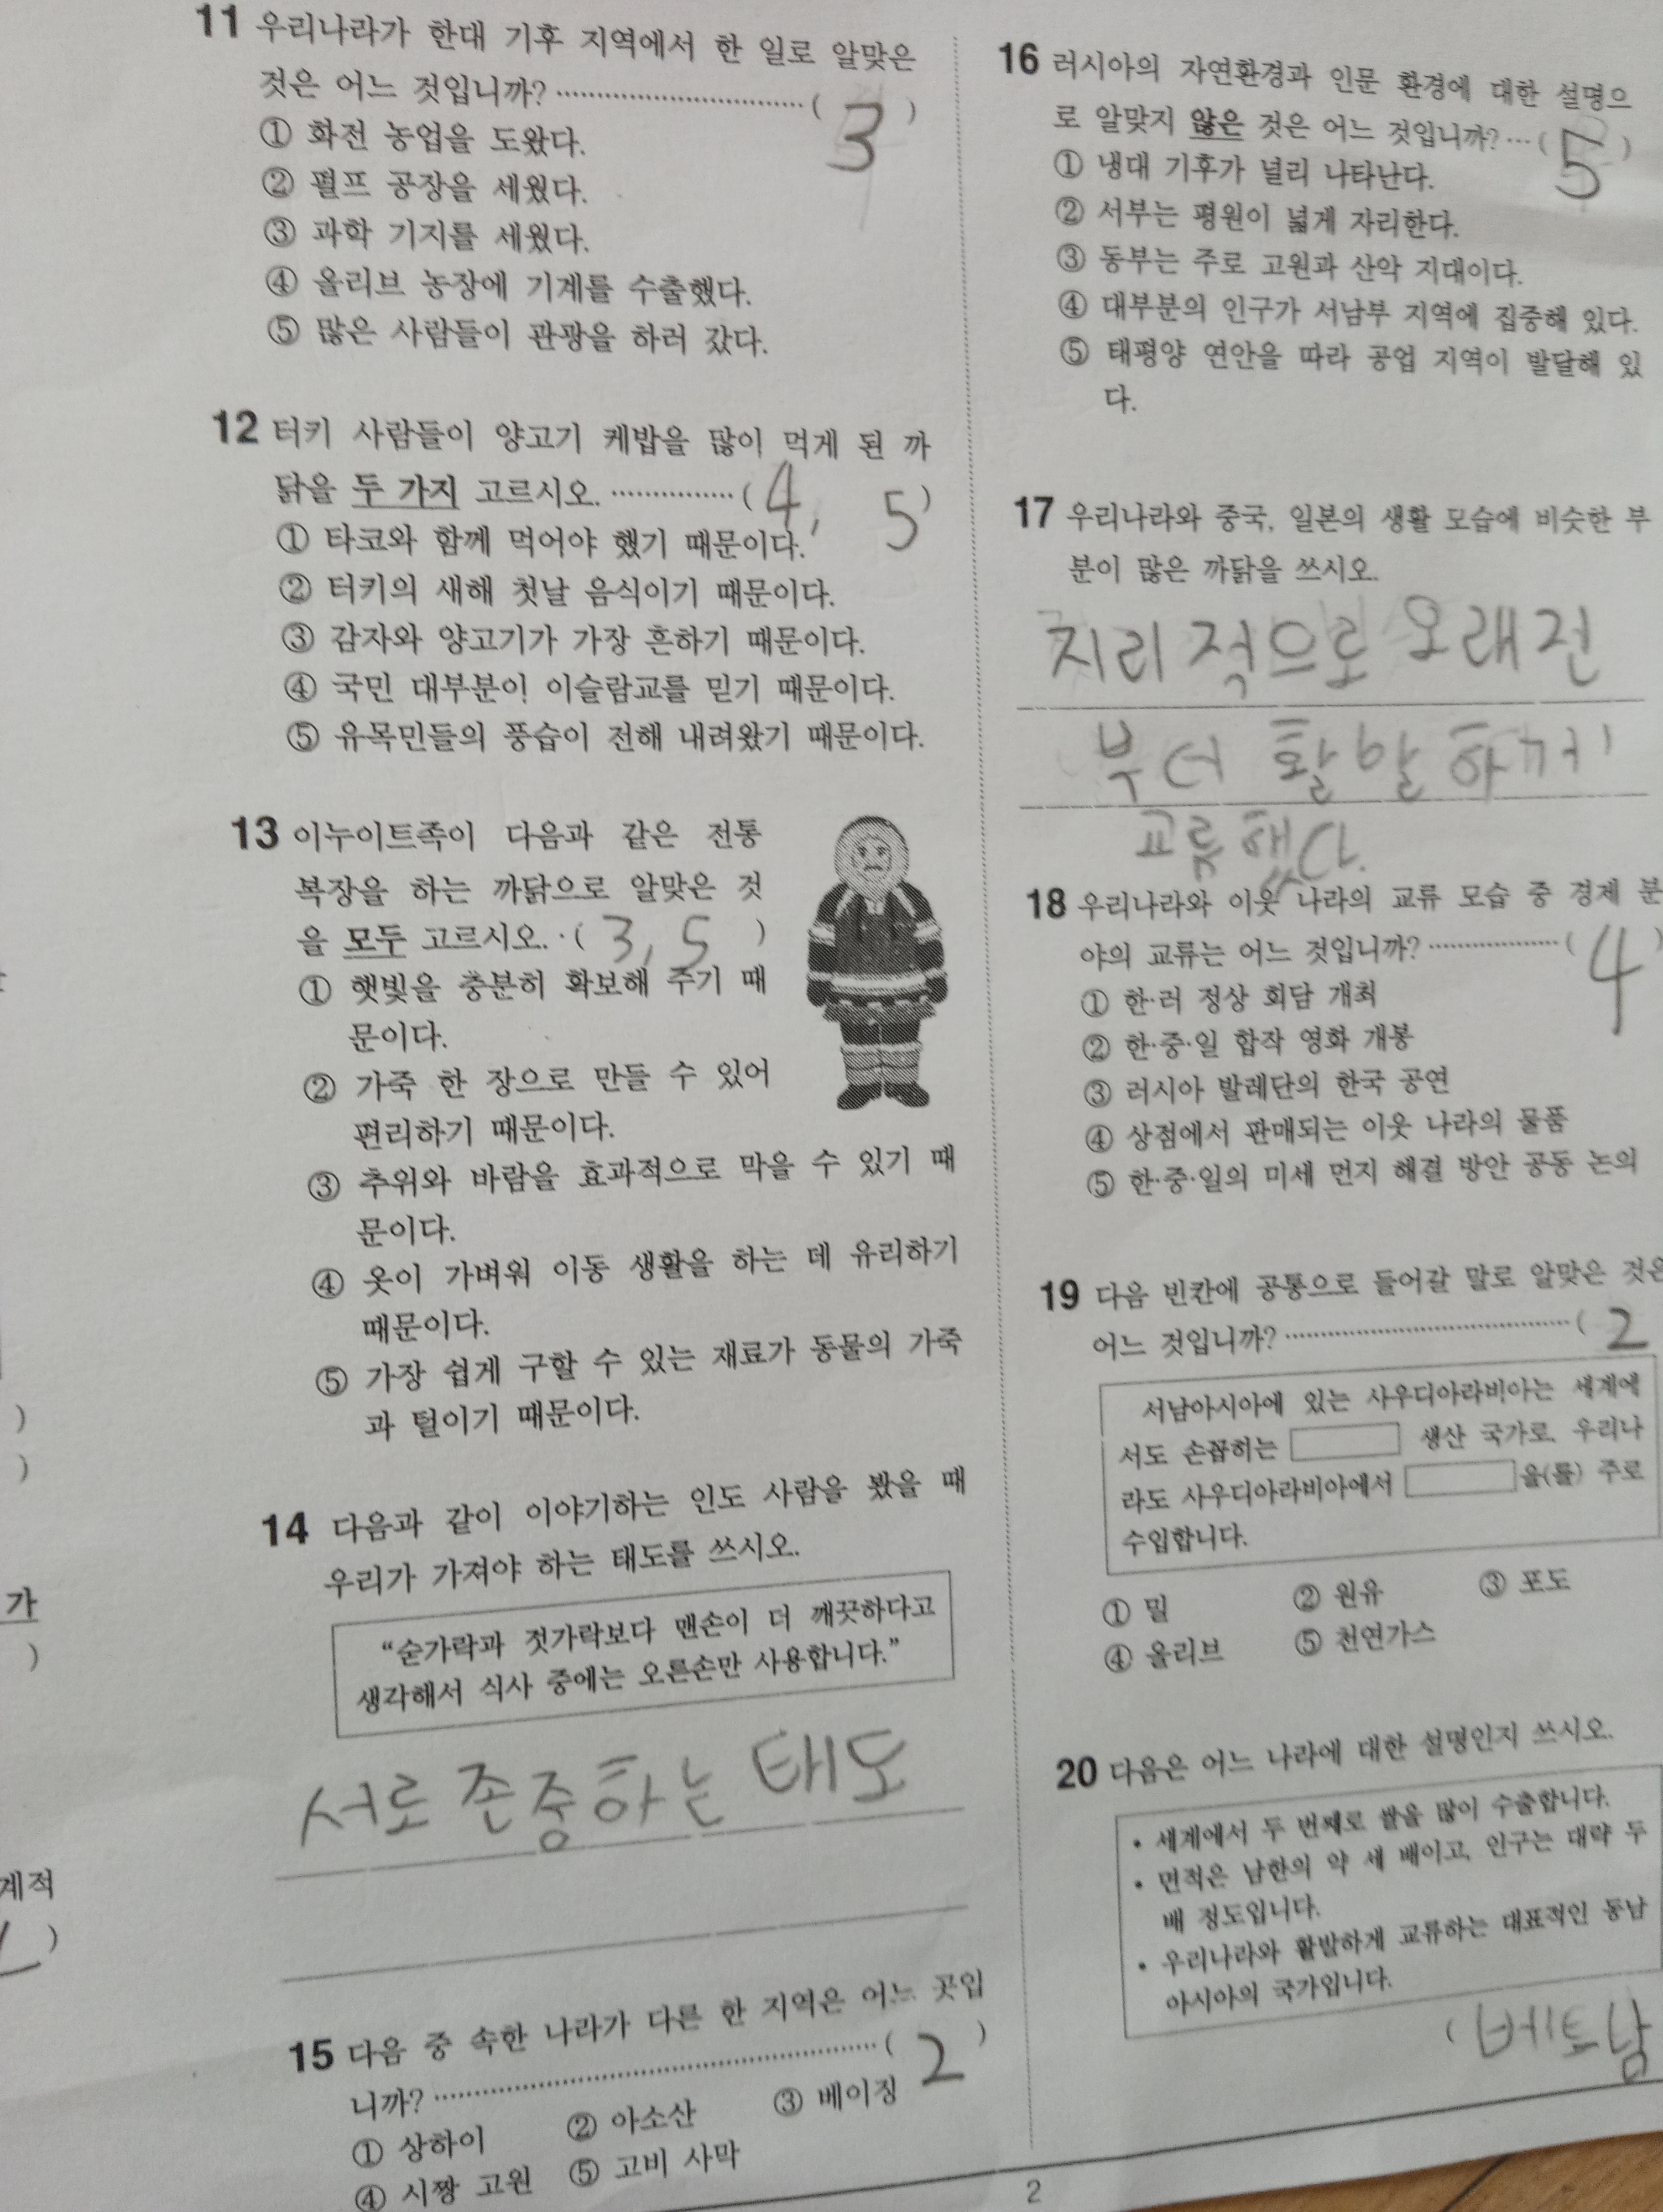 11 우리나라가 한대 기후 지역에서 한 일로 알맞은
것은 어느 것입니까? ( 3 )
① 화전 농업을 도왔다.
② 펄프 공장을 세웠다.
③ 과학 기지를 세웠다.
④ 올리브 농장에 기계를 수출했다.
⑤ 많은 사람들이 관광을 하러 갔다.
12 터키 사람들이 양고기 케밥을 많이 먹게 된 까
닭을 두 가지 고르시오. ( 4, 5 )
① 타코와 함께 먹어야 했기 때문이다.
② 터키의 새해 첫날 음식이기 때문이다.
③ 감자와 양고기가 가장 흔하기 때문이다.
④ 국민 대부분이 이슬람교를 믿기 때문이다.
⑤ 유목민들의 풍습이 전해 내려왔기 때문이다.
13 이누이트족이 다음과 같은 전통
복장을 하는 까닭으로 알맞은 것
을 모두 고르시오. ( 3, 5 )
① 햇빛을 충분히 확보해 주기 때
문이다.
② 가죽 한 장으로 만들 수 있어
편리하기 때문이다.
③ 추위와 바람을 효과적으로 막을 수 있기 때
문이다.
④ 옷이 가벼워 이동 생활을 하는 데 유리하기
때문이다.
⑤ 가장 쉽게 구할 수 있는 재료가 동물의 가죽
과 털이기 때문이다.
14 다음과 같이 이야기하는 인도 사람을 봤을 때
우리가 가져야 하는 태도를 쓰시오.
“숟가락과 젓가락보다 맨손이 더 깨끗하다고
생각해서 식사 중에는 오른손만 사용합니다.”
서로 존중하는 태도
15 다음 중 속한 나라가 다른 한 지역은 어느 곳입
니까? ( 2 )
① 상하이 ② 아소산 ③ 베이징
④ 시짱 고원 ⑤ 고비 사막
16 러시아의 자연환경과 인문 환경에 대한 설명으
로 알맞지 않은 것은 어느 것입니까? ( 5 )
① 냉대 기후가 널리 나타난다.
② 서부는 평원이 넓게 자리한다.
③ 동부는 주로 고원과 산악 지대이다.
④ 대부분의 인구가 서남부 지역에 집중해 있다.
⑤ 태평양 연안을 따라 공업 지역이 발달해 있
다.
17 우리나라와 중국, 일본의 생활 모습에 비슷한 부
분이 많은 까닭을 쓰시오.
지리적으로 오래전
부터 활발하게
교류했다.
18 우리나라와 이웃 나라의 교류 모습 중 경제 분
야의 교류는 어느 것입니까? ( 4 )
① 한·러 정상 회담 개최
② 한·중·일 합작 영화 개봉
③ 러시아 발레단의 한국 공연
④ 상점에서 판매되는 이웃 나라의 물품
⑤ 한·중·일의 미세 먼지 해결 방안 공동 논의
19 다음 빈칸에 공통으로 들어갈 말로 알맞은 것은
어느 것입니까? ( 2
서남아시아에 있는 사우디아라비아는 세계에
서도 손꼽히는 생산 국가로, 우리나
라도 사우디아라비아에서 을(를) 주로
수입합니다.
① 밀 ② 원유 ③ 포도
④ 올리브 ⑤ 천연가스
20 다음은 어느 나라에 대한 설명인지 쓰시오.
• 세계에서 두 번째로 쌀을 많이 수출합니다.
• 면적은 남한의 약 세 배이고, 인구는 대략 두
배 정도입니다.
• 우리나라와 활발하게 교류하는 대표적인 동남
아시아의 국가입니다.
( 베트남
가
계적
2